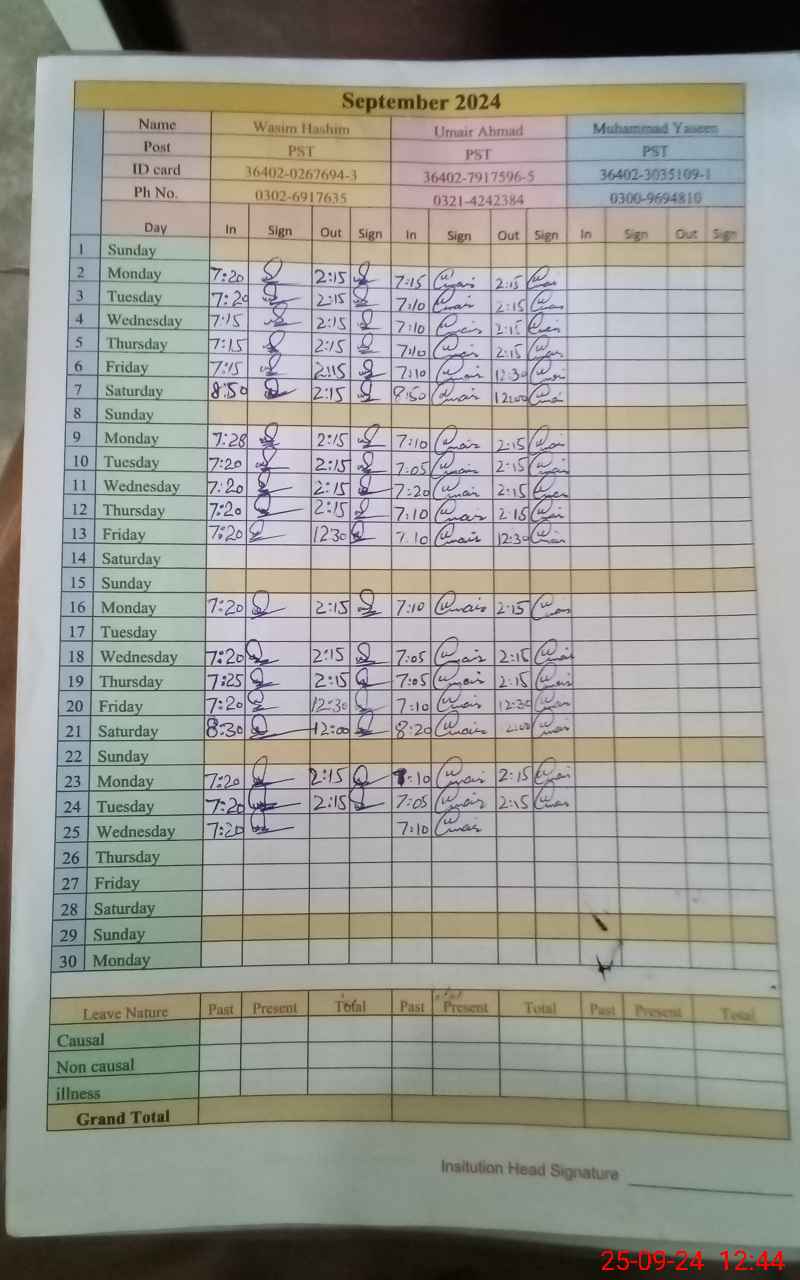 September 2024
Name Wasim Hashim Umair Ahmad Muhammad Yaseen
Post PST PST PST
ID card 36402-0267694-3 36402-7917596-5 36402-3035109-1
Ph No. 0302-6917635 0321-4242384 0300-9694810
Day In Sign Out Sign In Sign Out Sign In Sign Out Sign
1 Sunday
2 Monday 7:20 2:15 7:15 2:15
3 Tuesday 7:20 2:15 7:10 2:15
4 Wednesday 7:15 2:15 7:10 2:15
5 Thursday 7:15 2:15 7:10 2:15
6 Friday 7:15 2:15 7:10 12:30
7 Saturday 8:50 2:15 8:50 12:00
8 Sunday
9 Monday 7:28 2:15 7:10 2:15
10 Tuesday 7:20 2:15 7:05 2:15
11 Wednesday 7:20 2:15 7:20 2:15
12 Thursday 7:20 2:15 7:10 2:15
13 Friday 7:20 12:30 7:10 12:30
14 Saturday
15 Sunday
16 Monday 7:20 2:15 7:10 2:15
17 Tuesday
18 Wednesday 7:20 2:15 7:05 2:15
19 Thursday 7:25 2:15 7:05 2:15
20 Friday 7:20 12:30 7:10 12:30
21 Saturday 8:30 12:00 8:20 12:00
22 Sunday
23 Monday 7:20 2:15 7:10 2:15
24 Tuesday 7:20 2:15 7:05 2:15
25 Wednesday 7:20 7:10
26 Thursday
27 Friday
28 Saturday
29 Sunday
30 Monday
Leave Nature Past Present Total Past Present Total Past Present Total
Causal
Non causal
illness
Grand Total
Insitution Head Signature
25-09-24 12:44